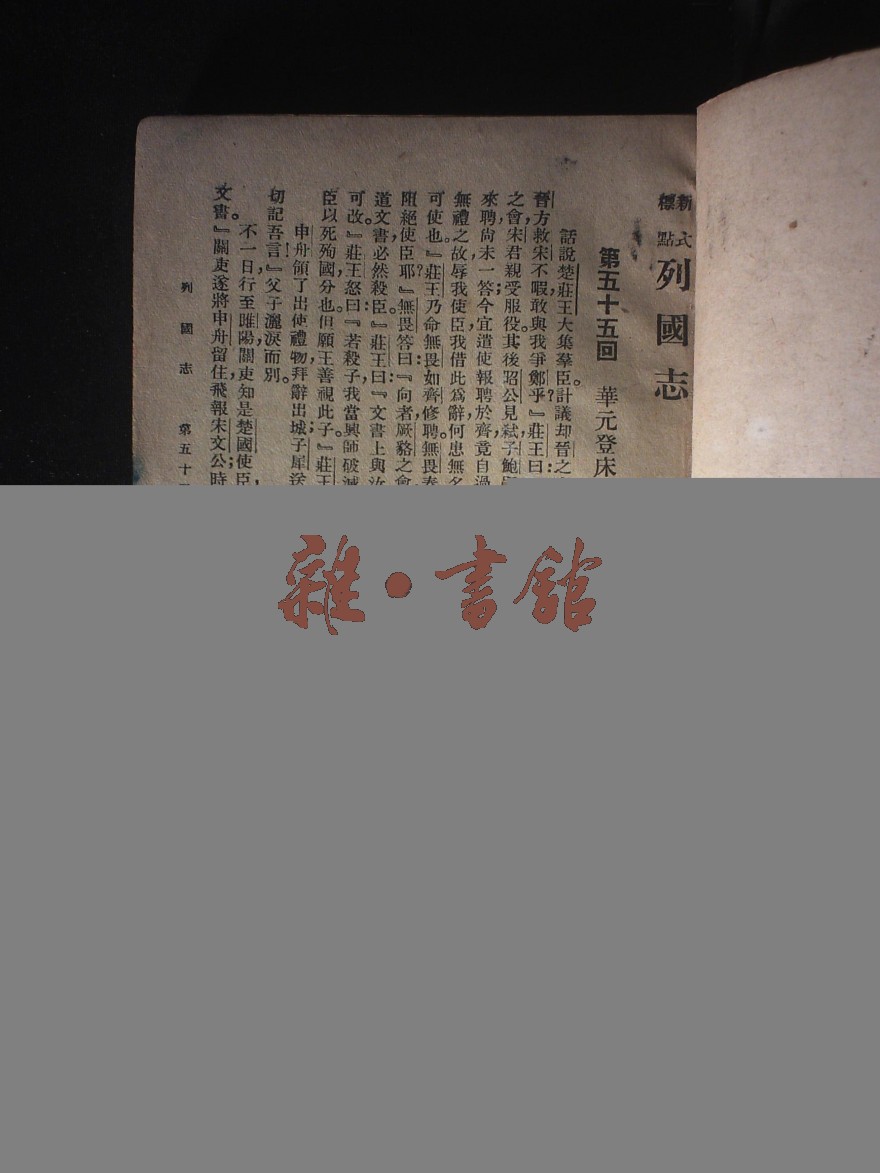 新式標點 列國志
第五十五回 華元登床
話說楚莊王大集羣臣。計議却晉之
晉方救宋不暇敢與我爭鄭乎?』莊王曰:
之會,宋君親受服役。其後昭公見弒,子鮑
來聘,尚未一答;今宜遣使報聘於齊,竟自過
無禮之故,辱我使臣,我借此為辭,何患無名
可使也。』莊王乃命無畏如齊修聘。無畏奏
阻絕使臣耶?』無畏答曰:『向者厥貉之會
道文書,必然殺臣。』莊王曰:『文書上與汝
可改。』莊王怒曰:『若殺子,我當興師破滅
臣以死殉國,分也。但願王善視此子。』莊王
申舟領了出使禮物,拜辭出城;子犀送
切記吾言!』父子灑淚而別。
不一日,行至睢陽,關吏知是楚國使臣,
文書。』關吏遂將申舟留住,飛報宋文公;時
列國志 第五十
雜·書館